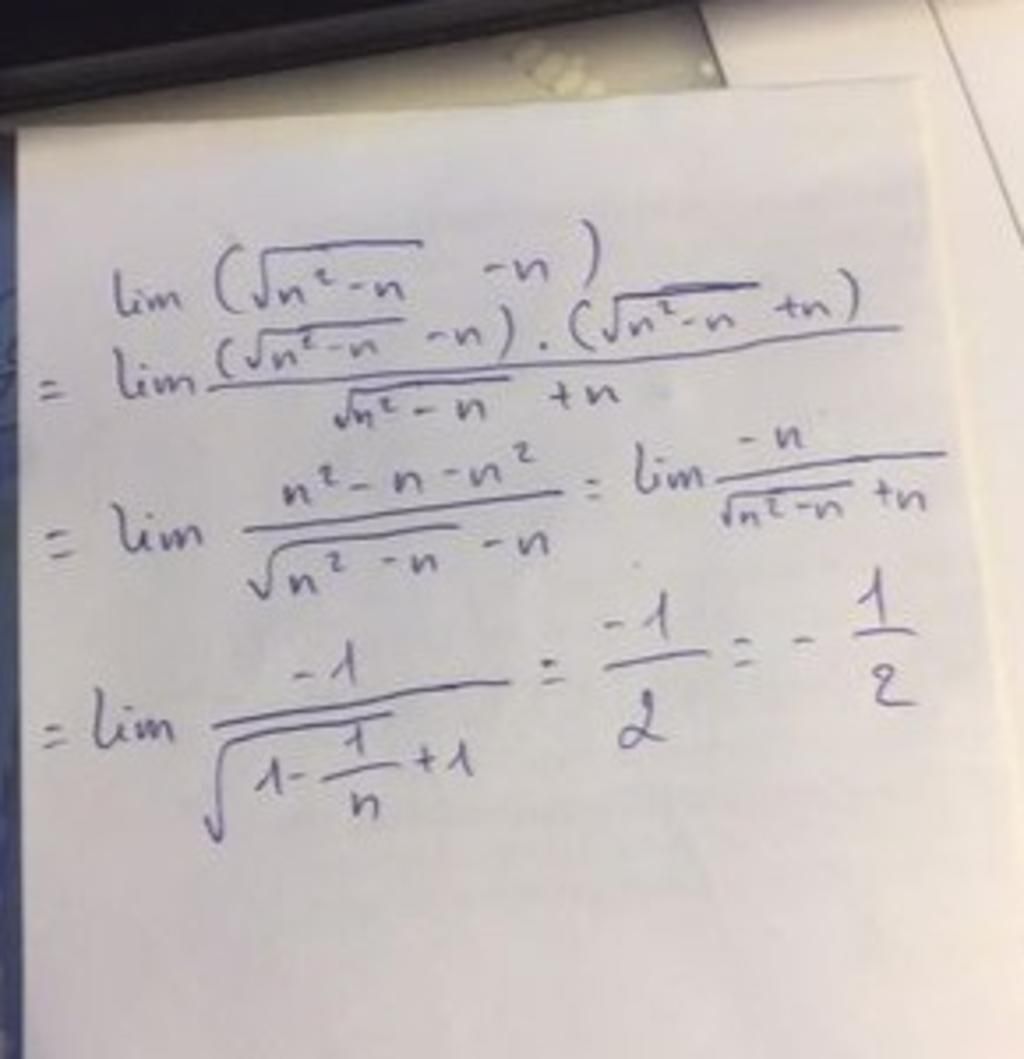 lim (√(n² - n) - n)
= lim ((√(n² - n) - n) . (√(n² - n) + n)) / (√(n² - n) + n)
= lim (n² - n - n²) / (√(n² - n) - n) = lim (-n) / (√(n² - n) + n)
= lim (-1) / (√(1 - 1/n) + 1) = (-1)/2 = - 1/2